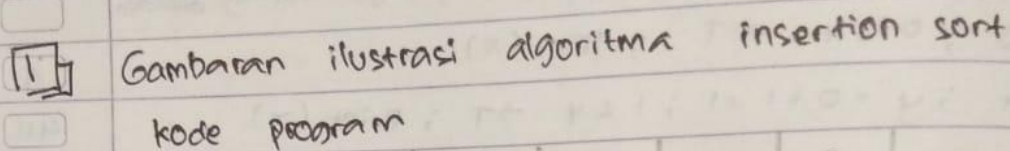 1 Gambaran ilustrasi algoritma insertion sort
kode program